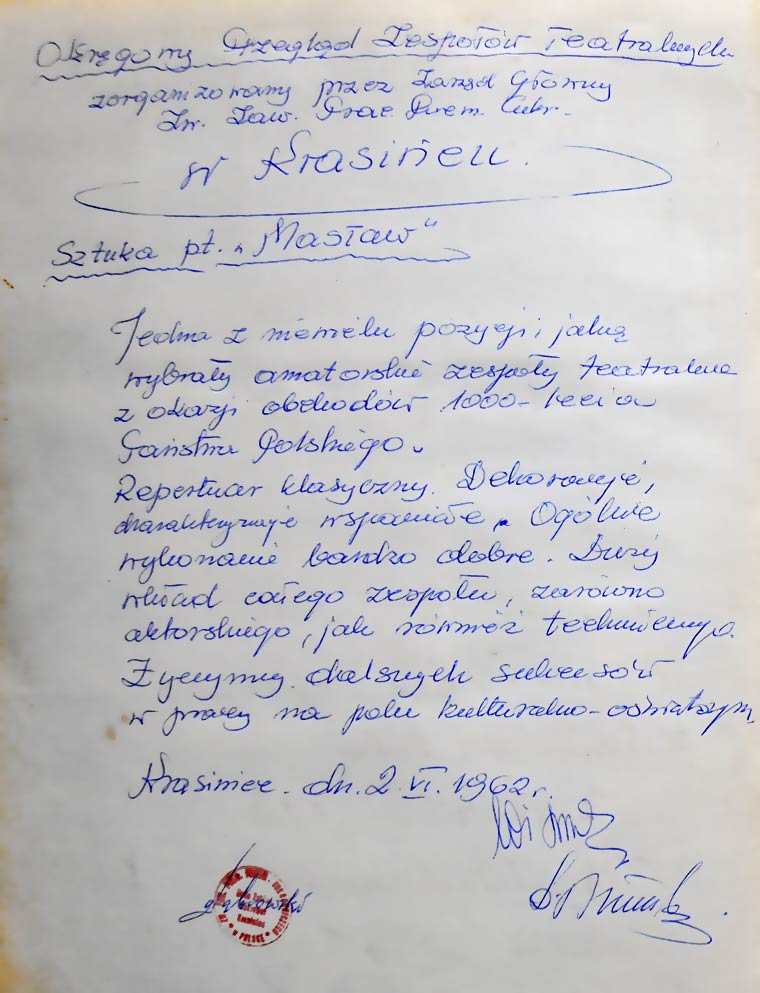 Okręgowy Przegląd Zespołów Teatralnych
zorganizowany przez Zarząd Główny
Zw. Zaw. Prac. Przem. Cukr.
w Krasińcu.
Sztuka pt. „Masław"
Jedna z niewielu pozycji, jaką
wybrały amatorskie zespoły teatralne
z okazji obchodów 1000-lecia
Państwa Polskiego.
Repertuar klasyczny. Dekoracje,
charakteryzacje wspaniałe. Ogólnie
wykonanie bardzo dobre. Duży
wkład całego zespołu, zarówno
aktorskiego, jak również technicznego.
Życzymy dalszych sukcesów
w pracy na polu kulturalno-oświatowym,
Krasiniec. dn. 2 VI. 1962 r.